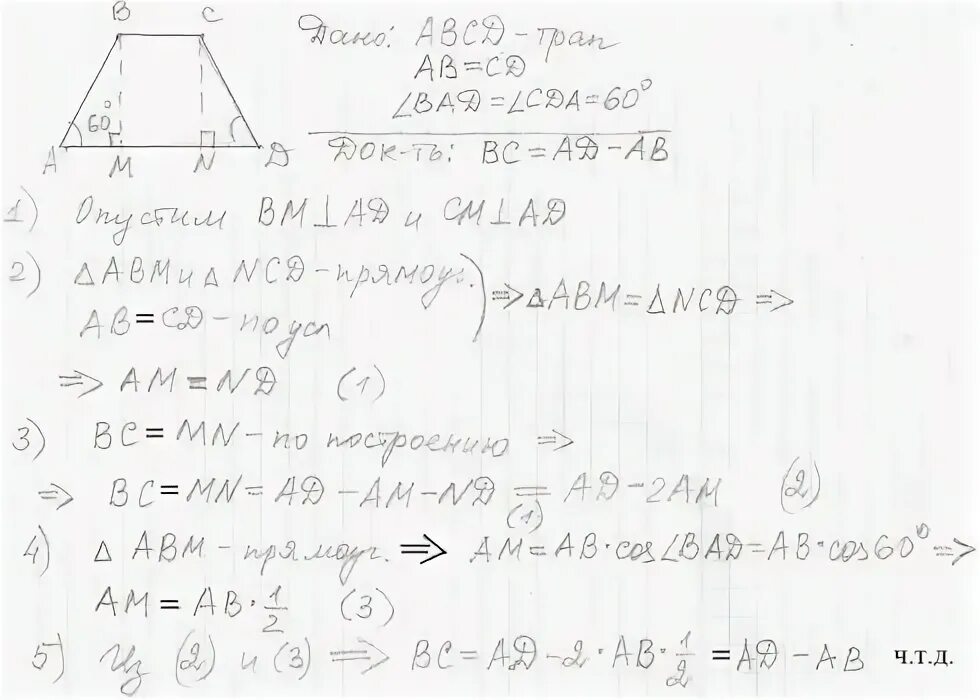 B C
60°
A M N D
Дано: ABCD - трап
AB = CD
∠BAD = ∠CDA = 60°
Док-ть: BC = AD - AB
1) Опустим BM ⊥ AD и CM ⊥ AD
2) △ABM и △NCD - прямоуг.
AB = CD - по усл
⇒ △ABM = △NCD ⇒
⇒ AM = ND (1)
3) BC = MN - по построению ⇒
⇒ BC = MN = AD - AM - ND = AD - 2AM (2)
(1)
4) △ABM - прямоуг. ⇒ AM = AB · cos∠BAD = AB · cos60° ⇒
AM = AB · 1/2 (3)
5) Из (2) и (3) ⇒ BC = AD - 2 · AB · 1/2 = AD - AB ч.т.д.